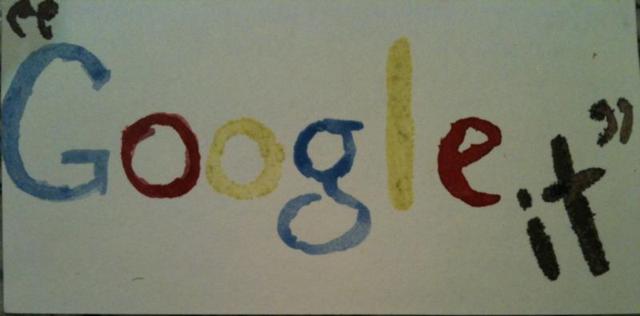 “Google it”